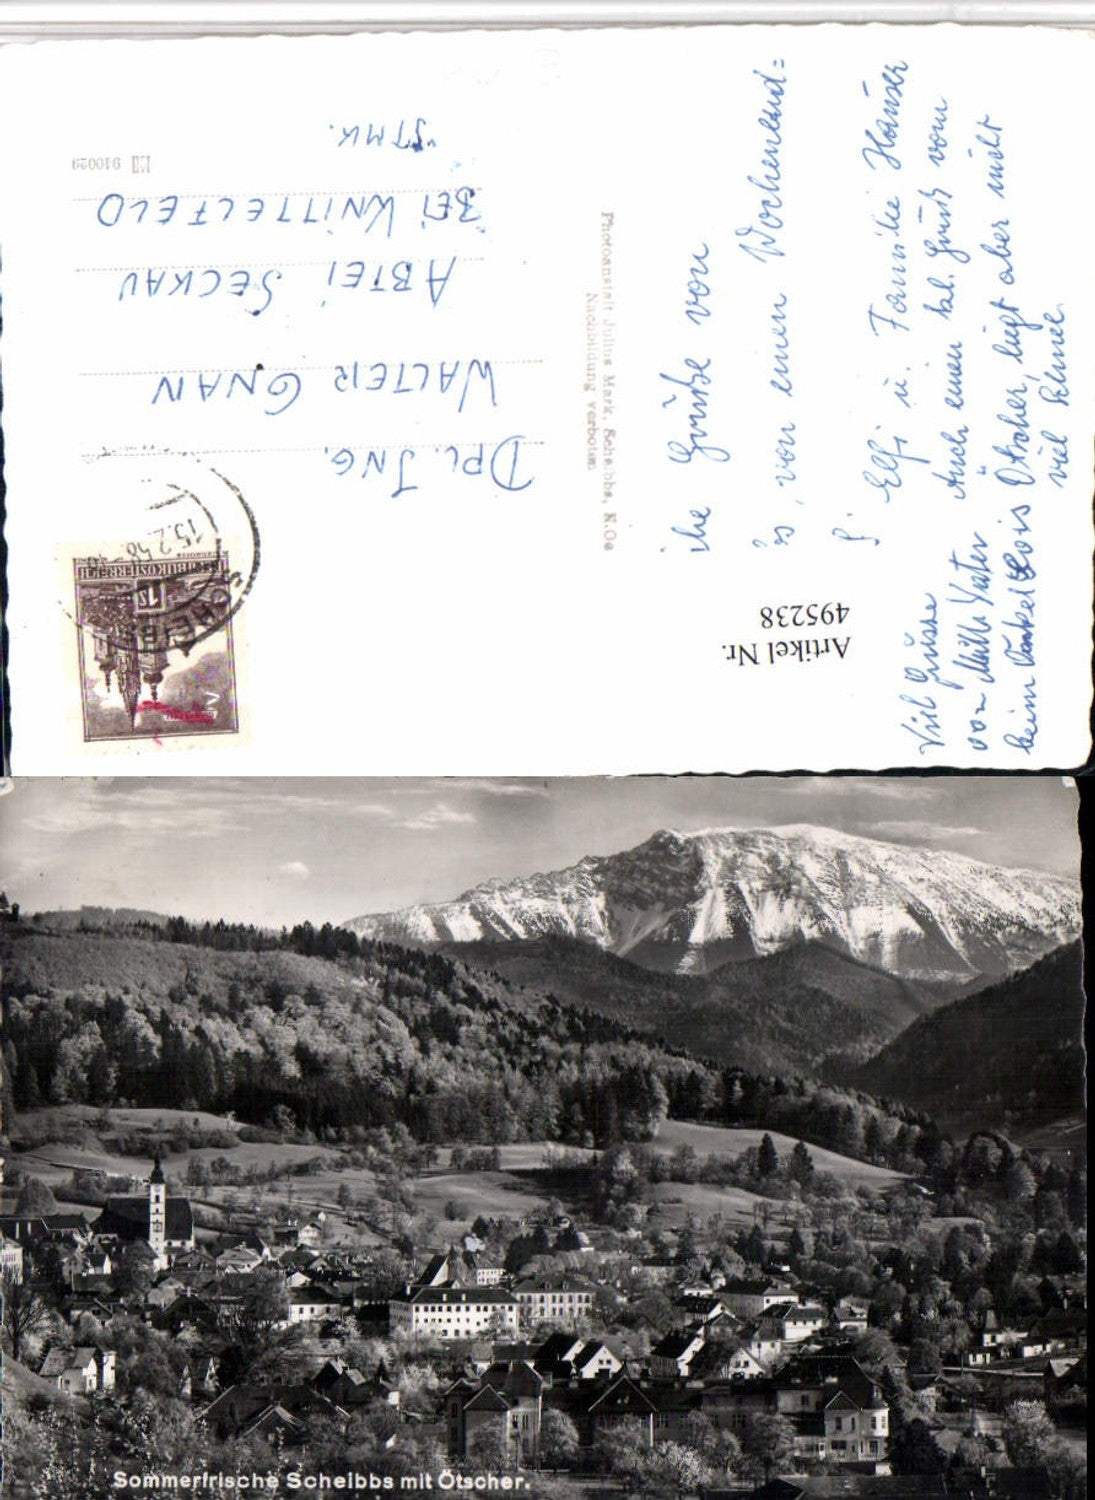 ihe Grüße von
is, von einen Wochenend=
Elfi u. Familie Hauser
Auch einen kl. Gruß vom
Ötscher, liegt aber nicht
viel Schnee
Viel Grüsse
von Vater
beim Onkel Lois
Artikel Nr.
495238
Photoanstalt Julius Mark, Scheibbs, N.Oe
Nachbildung verboten
1S
REPUBLIK ÖSTERREICH
SCHEIBBS
15.2.58
DPL. JNG.
WALTER GNAN
ABTEI SECKAU
BEI KNITTELFELD
STMK.
910029
Sommerfrische Scheibbs mit Ötscher.